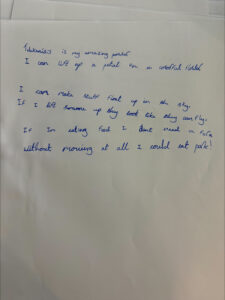 Telekinesis is my amazing power
I can lift up a pitch on a football field
I can make stuff float up in the sky.
If I lift someone up they look like they can fly.
If Im eating food I dont need a fork
without moving at all I could eat pork!